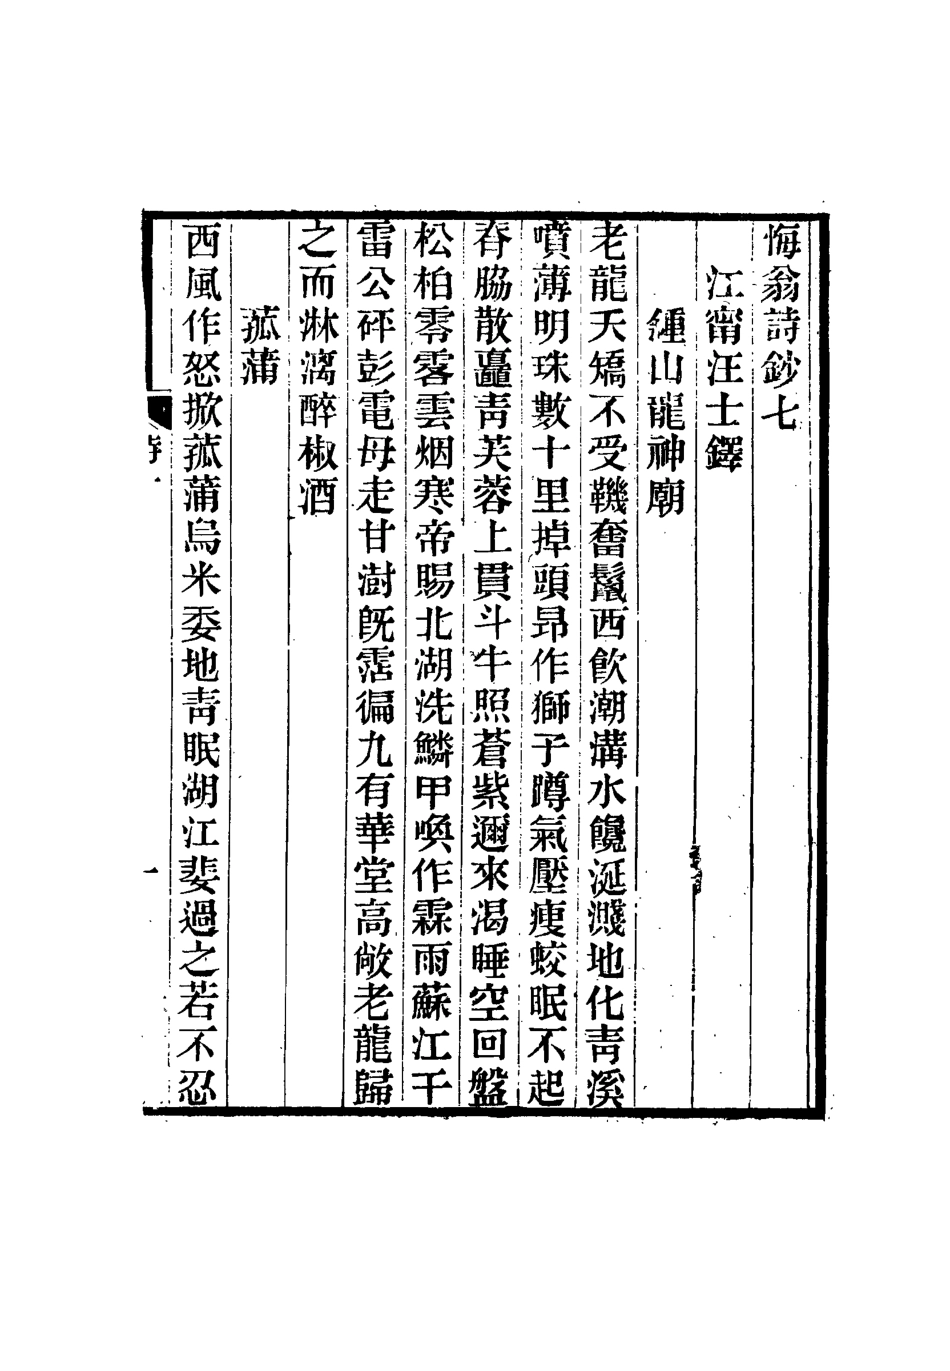 悔翁詩鈔七
江甯汪士鐸
鍾山龍神廟
老龍夭矯不受鞿奮鬣西飮潮溝水饞涎濺地化靑溪
噴薄明珠數十里掉頭昻作獅子蹲氣壓瘦蛟眠不起
脊脇散矗靑芙蓉上貫斗牛照蒼紫邇來渴睡空回盤
松柏零零雲烟寒帝賜北湖洗鱗甲喚作霖雨蘇江干
雷公砰彭電母走甘澍旣霑徧九有華堂高敞老龍歸
之而淋漓醉椒酒
菰蒲
西風作怒掀菰蒲烏米委地靑眠湖江婓過之若不忍
一